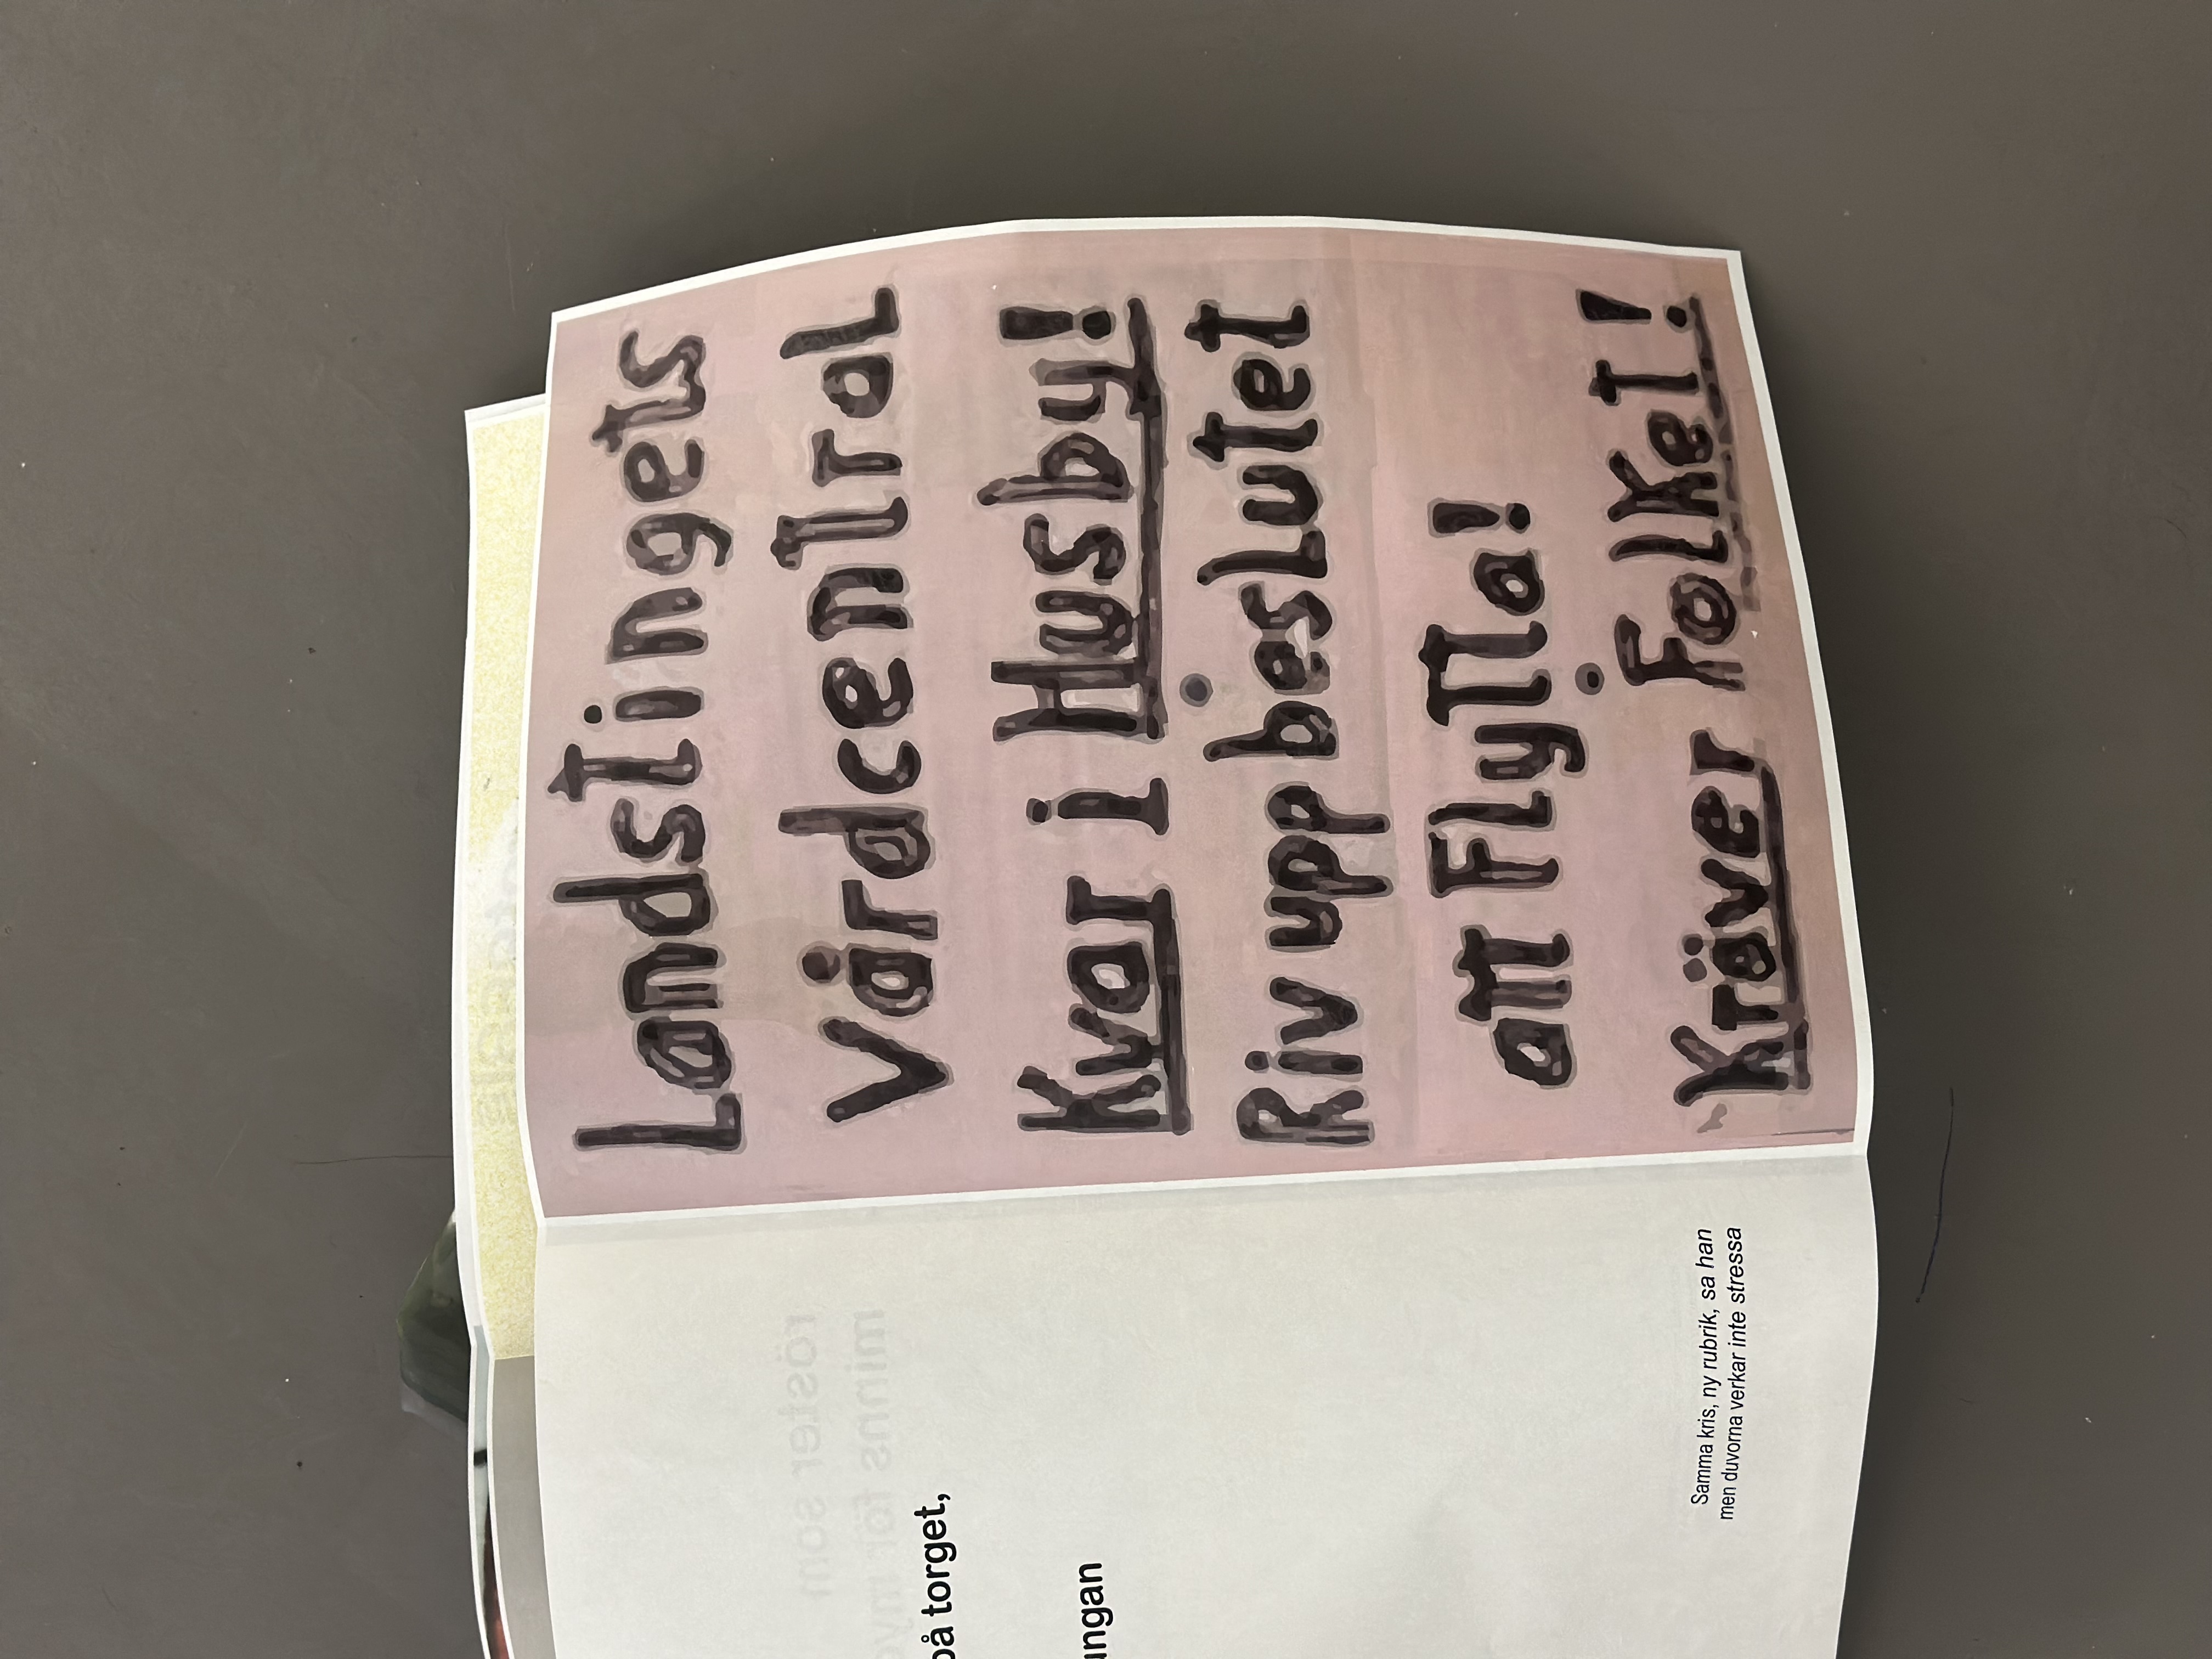 Landstingets
Vårdcentral
Kvar i Husby!
Riv upp beslutet
att Flytta!
Kräver Folket!
på torget,
ungan
Samma kris, ny rubrik, sa han
men duvorna verkar inte stressa
röster som
minns för